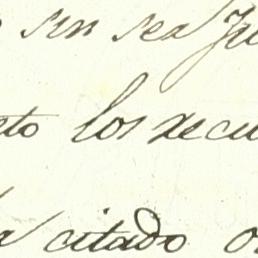 sin sea Ju
to los recu
a citado o